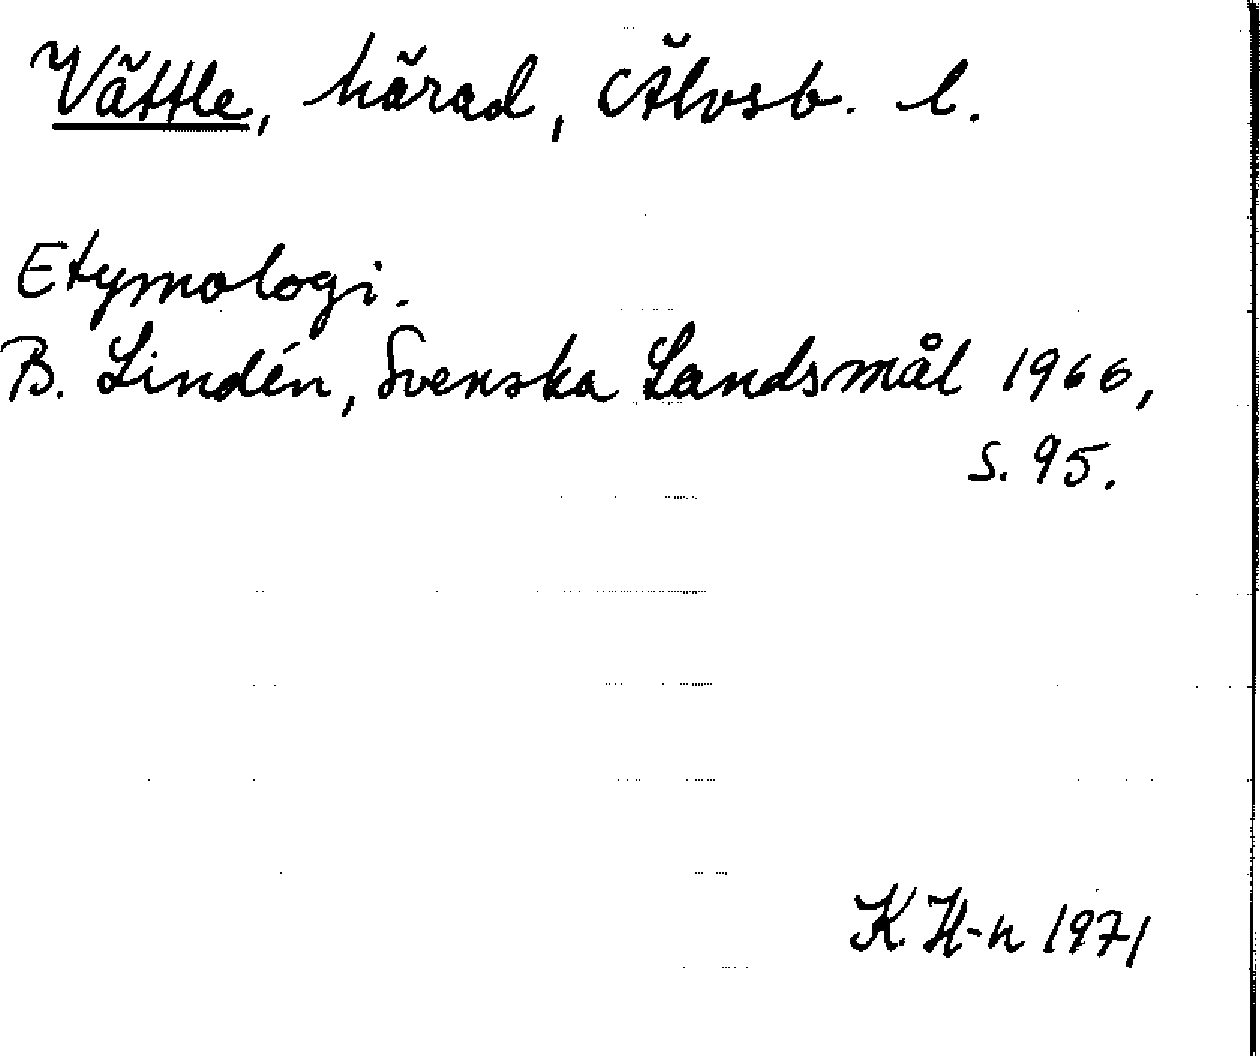 Vättle, härad, Älvsb. l.
Etymologi.
B. Lindén, Svenska Landsmål 1966,
s. 95.
K. H-n 1971